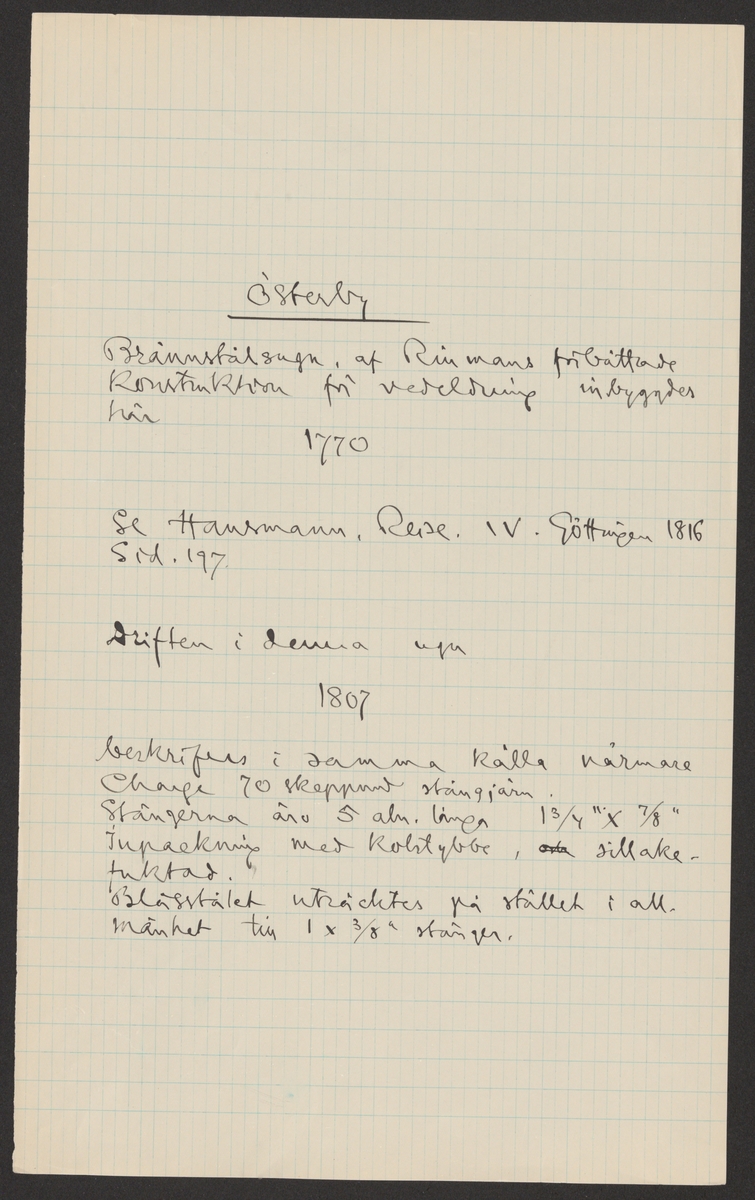 Österby
Brännstålsugn, af Rinmans förbättrade
Konstruktion för vedeldning inbyggdes
här
1770
Se Hausmann, Reise. IV. Göttingen 1816
Sid. 197.
Driften i denna ugn
1807
beskrifves i samma källa närmare
Charge 70 skeppund stångjärn.
Stängerna äro 5 aln. långa 1 3/4" x 7/8"
Inpackning med kolstybbe, sillake-
fuktad.
Blåsstålet uträcktes på stället i all-
mänhet till 1 x 3/8" stänger.